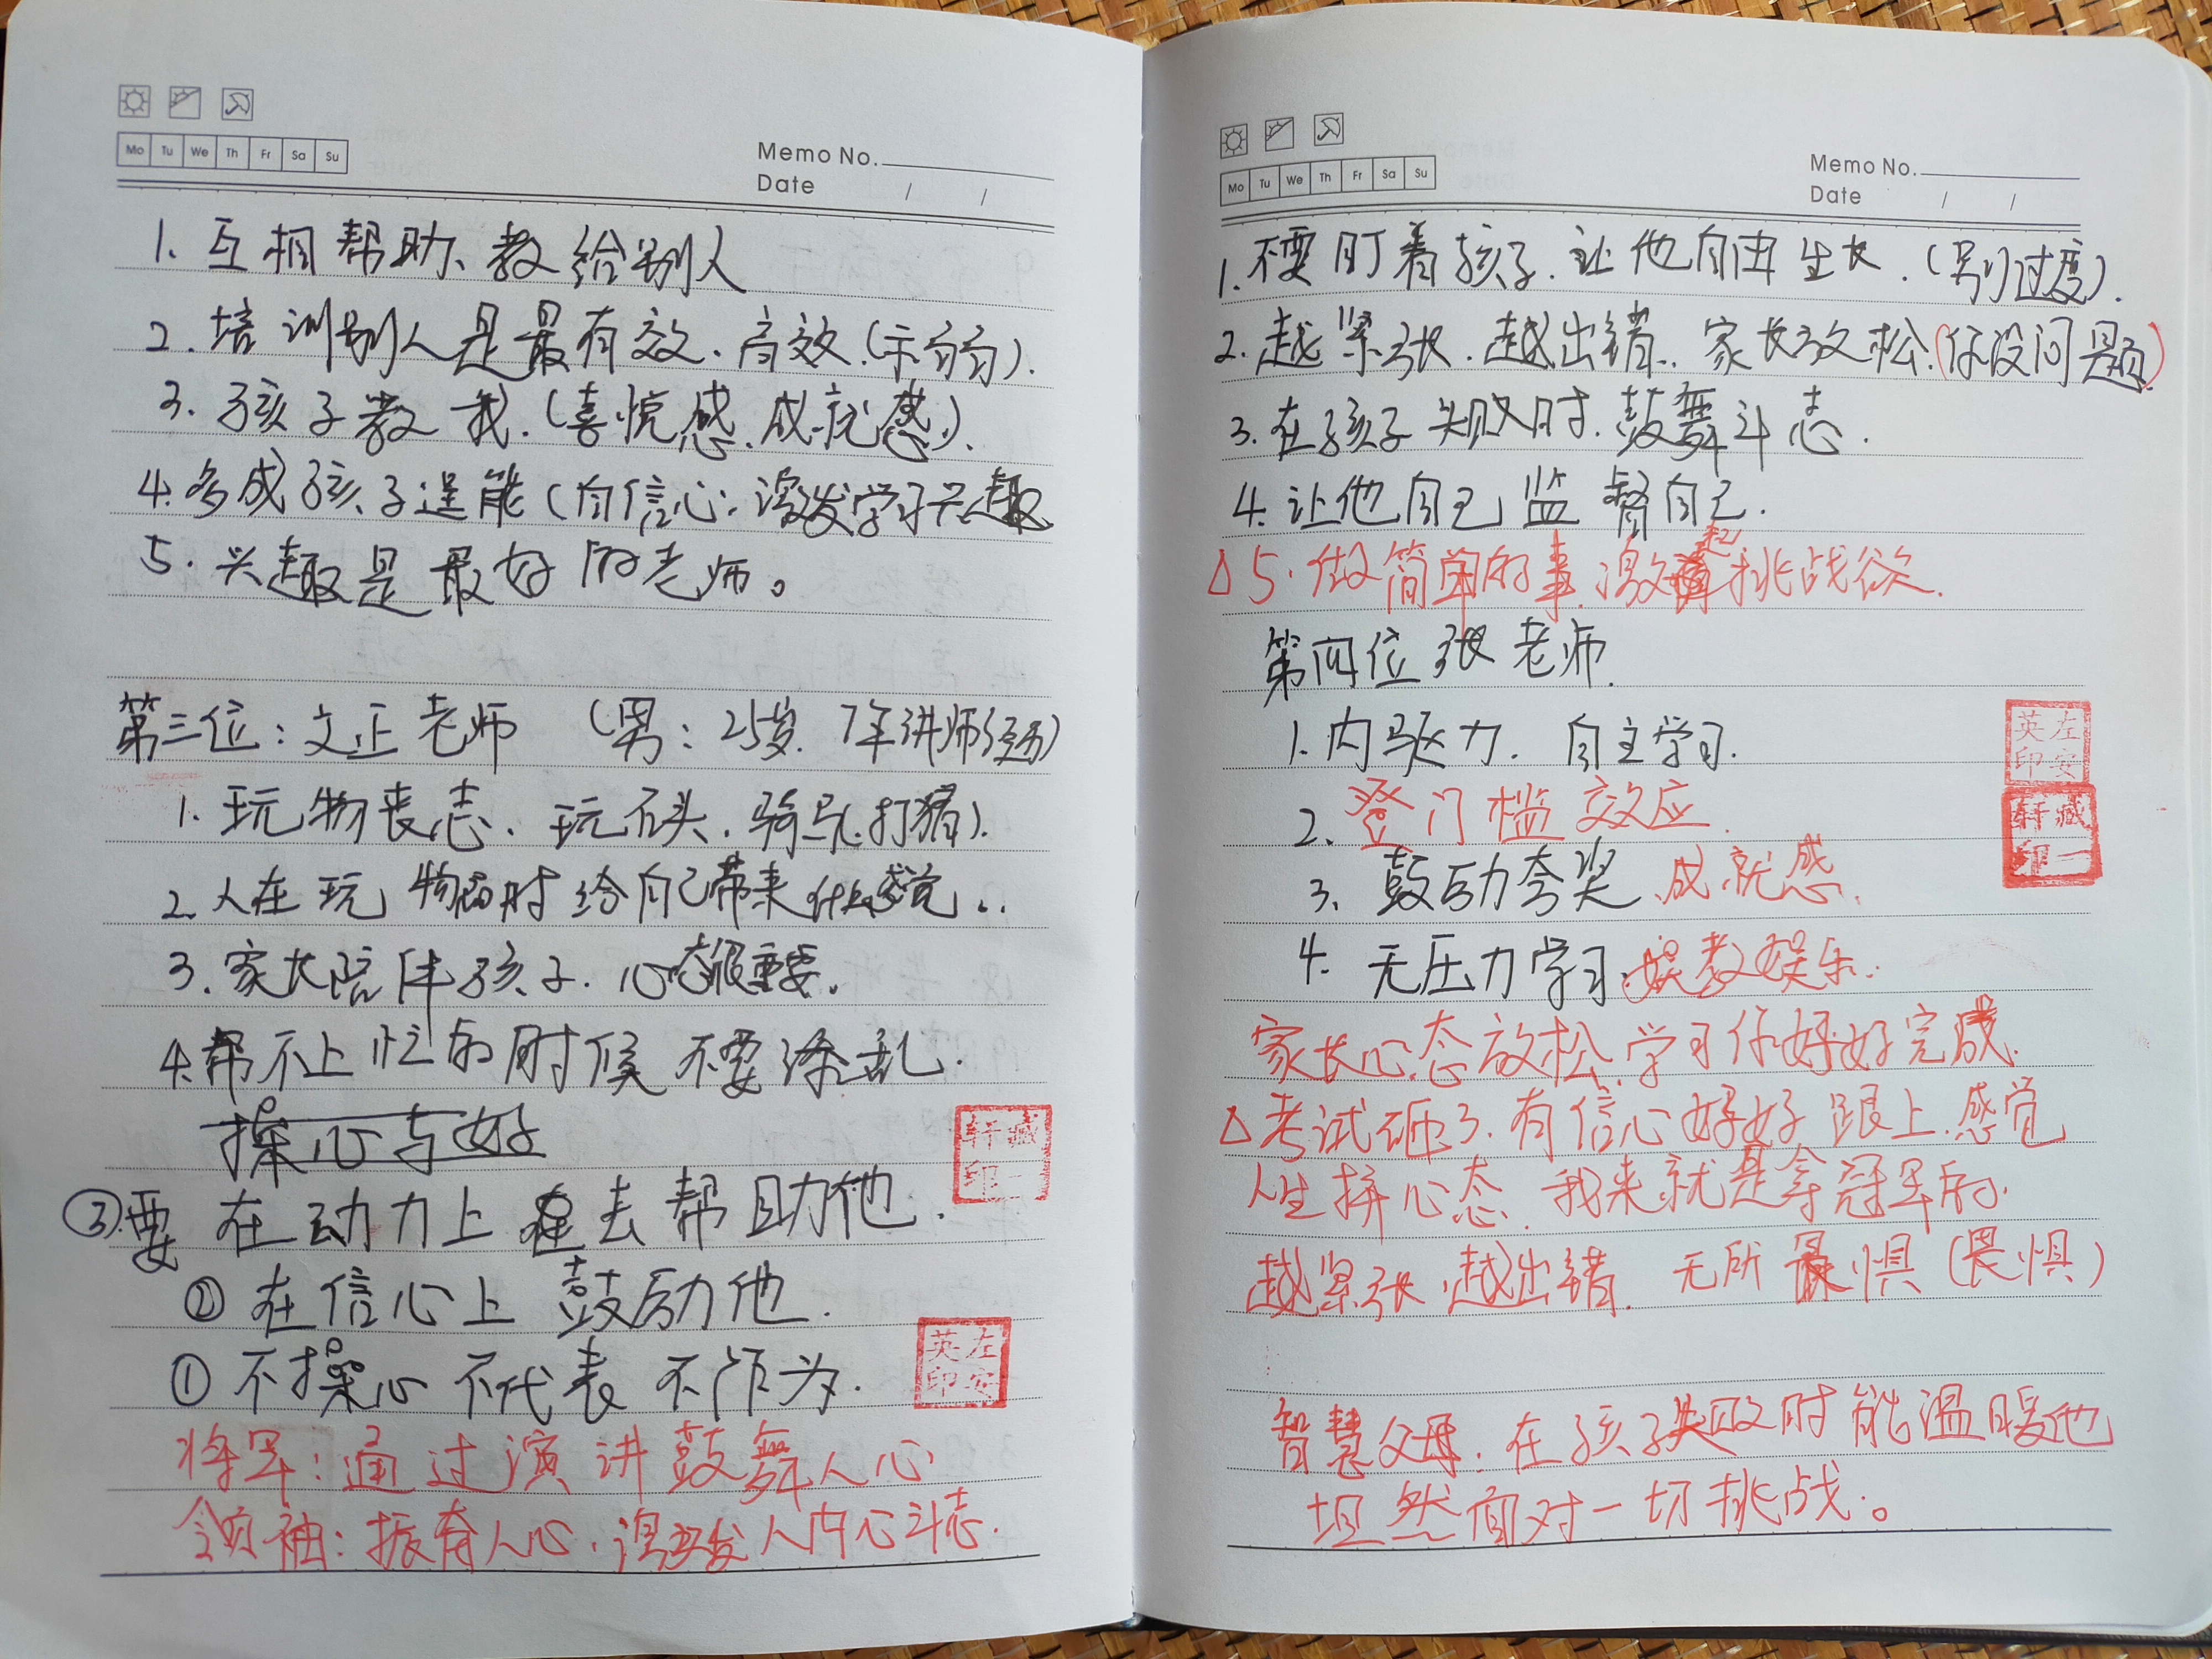 Mo Tu We Th Fr Sa Su
Memo No.
Date / /
1. 互相帮助、教给别人
2. 培训别人是最有效、高效.(示弱).
3. 孩子教我.(喜悦感.成就感).
4. 多成孩子逞能(自信心.激发学习兴趣
5. 兴趣是最好的老师。
第三位:文正老师 (男:25岁.7年讲师经历)
1. 玩物丧志、玩石头.骑马.打猎).
2. 人在玩物时给自己带来什么感觉..
3. 家长陪伴孩子.心态很重要.
4. 帮不上忙的时候不要添乱.
操心与好
③.要在动力上去帮助他.
②在信心上鼓励他.
①不操心不代表不作为.
将军:通过演讲鼓舞人心
领袖:振奋人心.激发人内心斗志.
藏轩一印
左英安印
Mo Tu We Th Fr Sa Su
Memo No.
Date / /
1. 不要盯着孩子.让他自由生长.(别过度).
2. 越紧张.越出错.家长放松.(你没问题)
3. 在孩子失败时.鼓舞斗志.
4. 让他自己监督自己.
△5. 做简单的事.激起挑战欲.
第四位张老师.
1. 内驱力.自主学习.
2. 登门槛效应.
3. 鼓励夸奖.成就感.
4. 无压力学习.娱教娱乐.
家长心态放松.学习你好好完成.
△考试砸了.有信心好好跟上.感觉
人生拼心态.我来就是拿冠军的.
越紧张.越出错.无所惧(畏惧)
智慧父母:在孩子失败时能温暖他
坦然面对一切挑战.。
左英安印
藏轩一印